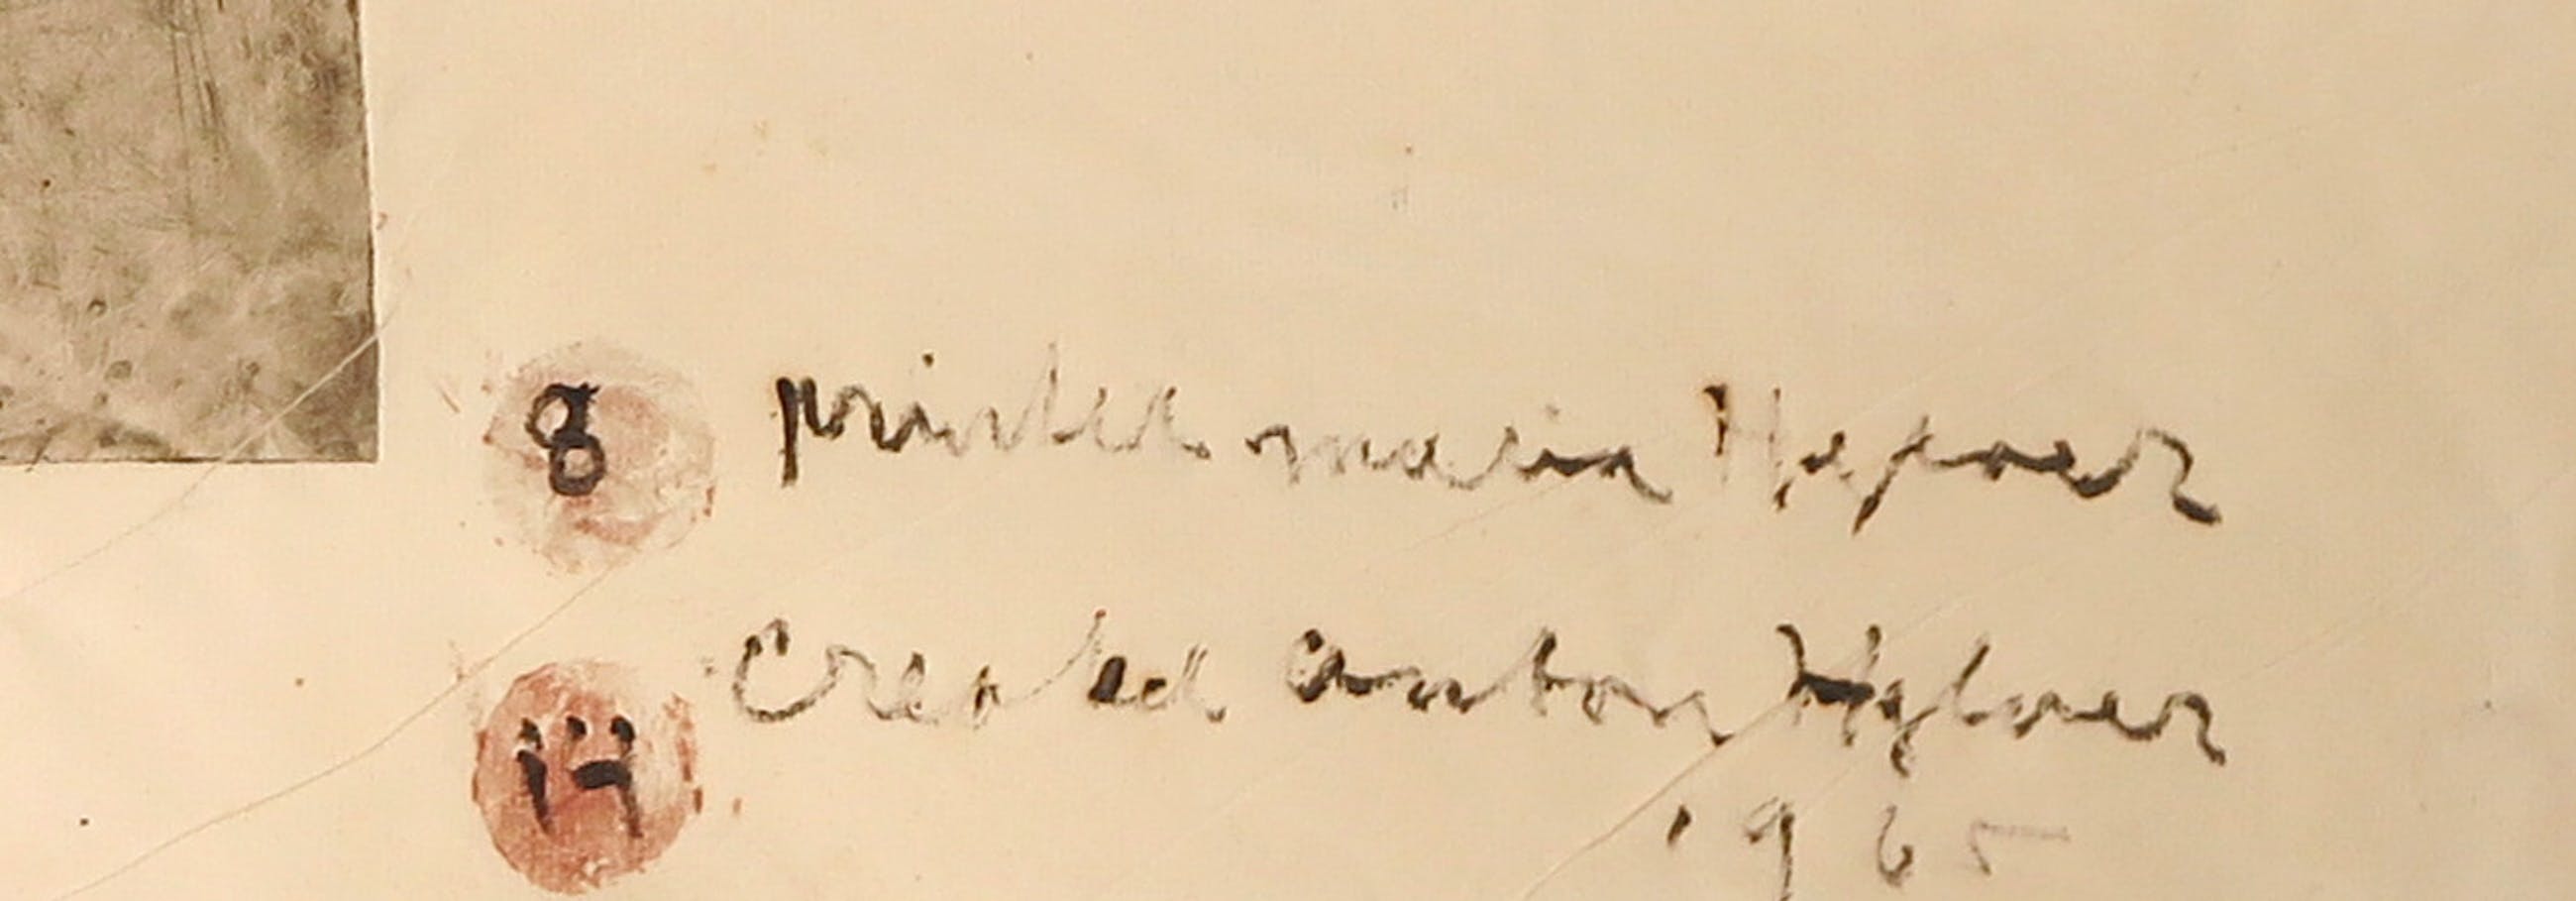 8 printed maria Hepner
created anton Hepner
1965